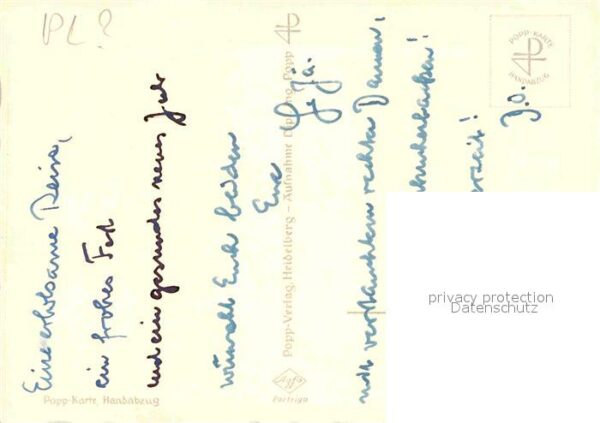 PL?
Eine erholsame Reise,
ein frohes Fest
und ein gesundes neues Jahr
wünscht Euch beiden
Eue
mit verstauchtem rechten Daumen,
J.O.
Popp-Karte, Handabzug
Popp-Verlag, Heidelberg – Aufnahme Dipl. Ing. Popp
Agfa
Portriga
POPP-KARTE
HANDABZUG
privacy protection
Datenschutz